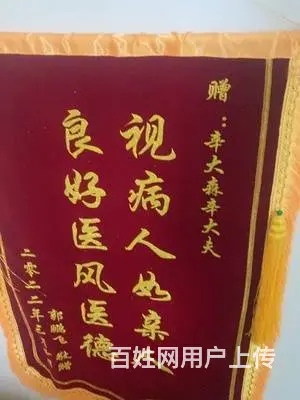 赠：辛大森辛大夫
视病人如亲人
良好医风医德
郭鹏飞敬赠
二零二二年
百姓网用户上传